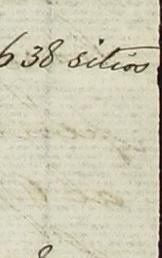 638 sitios